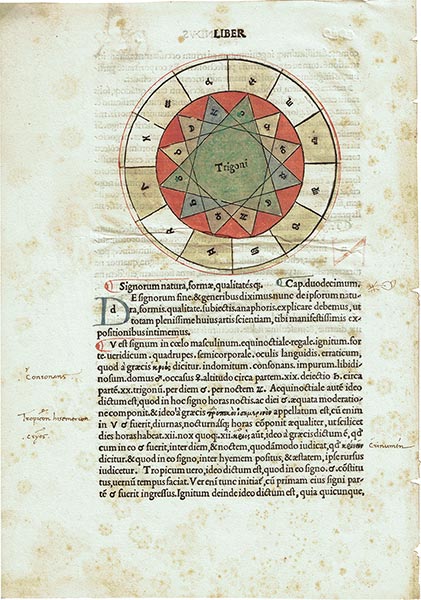 LIBER
Trigoni
Signorum natura, formæ, qualitates q;. Cap. duodecimum.
DE signorum fine. & generibus diximus nunc de ipsorum natura
, formis. qualitate. subiectis. anaphoris. explicare debemus, ut
totam plenissime huius artis scientiam, tibi manifestissimis ex
positionibus intimemus.
♈ est signum in cœlo masculinum. equinoctiale. regale. ignitum. for
te. ueridicum. quadrupes. semicorporale. oculis languidis. erraticum,
quod à græcis κριὸς dicitur. indomitum. consonans. impurum. libidi
nosum. domus ♂. occasus altitudo circa partem. xix. deiectio ♄. circa
parté. xx. trigonũ. per diem per noctem ♃. Aequinoctiale auté ideo
dictum est, quod in hoc signo horas noctis ac diei æquata moderatio
ne componit. & ideo à græcis appellatum est, cũ enim
in ♈ fuerit, diurnas, nocturnas q; horas cõponit æqualiter, ut scilicet
dies horas habeat. xii. nox quoq;. xii. aũt, ideo à græcis dictum é,
cum in eo fuerit, inter diem, & noctem, quodámodo iudicat,
dicitur. & quod in eo signo, inter hyemem positus, & æstatem, ipse rursus
iudicetur. Tropicum uero, ideo dictum est, quod in eo signo. cõstitu
tus, uernũ tempus faciat. Ver eni tunc initiat, cũ primam eius signi par
té fuerit ingressus. Ignitum deinde ideo dictum est, quia quicunque,
Consonans
Tropicon